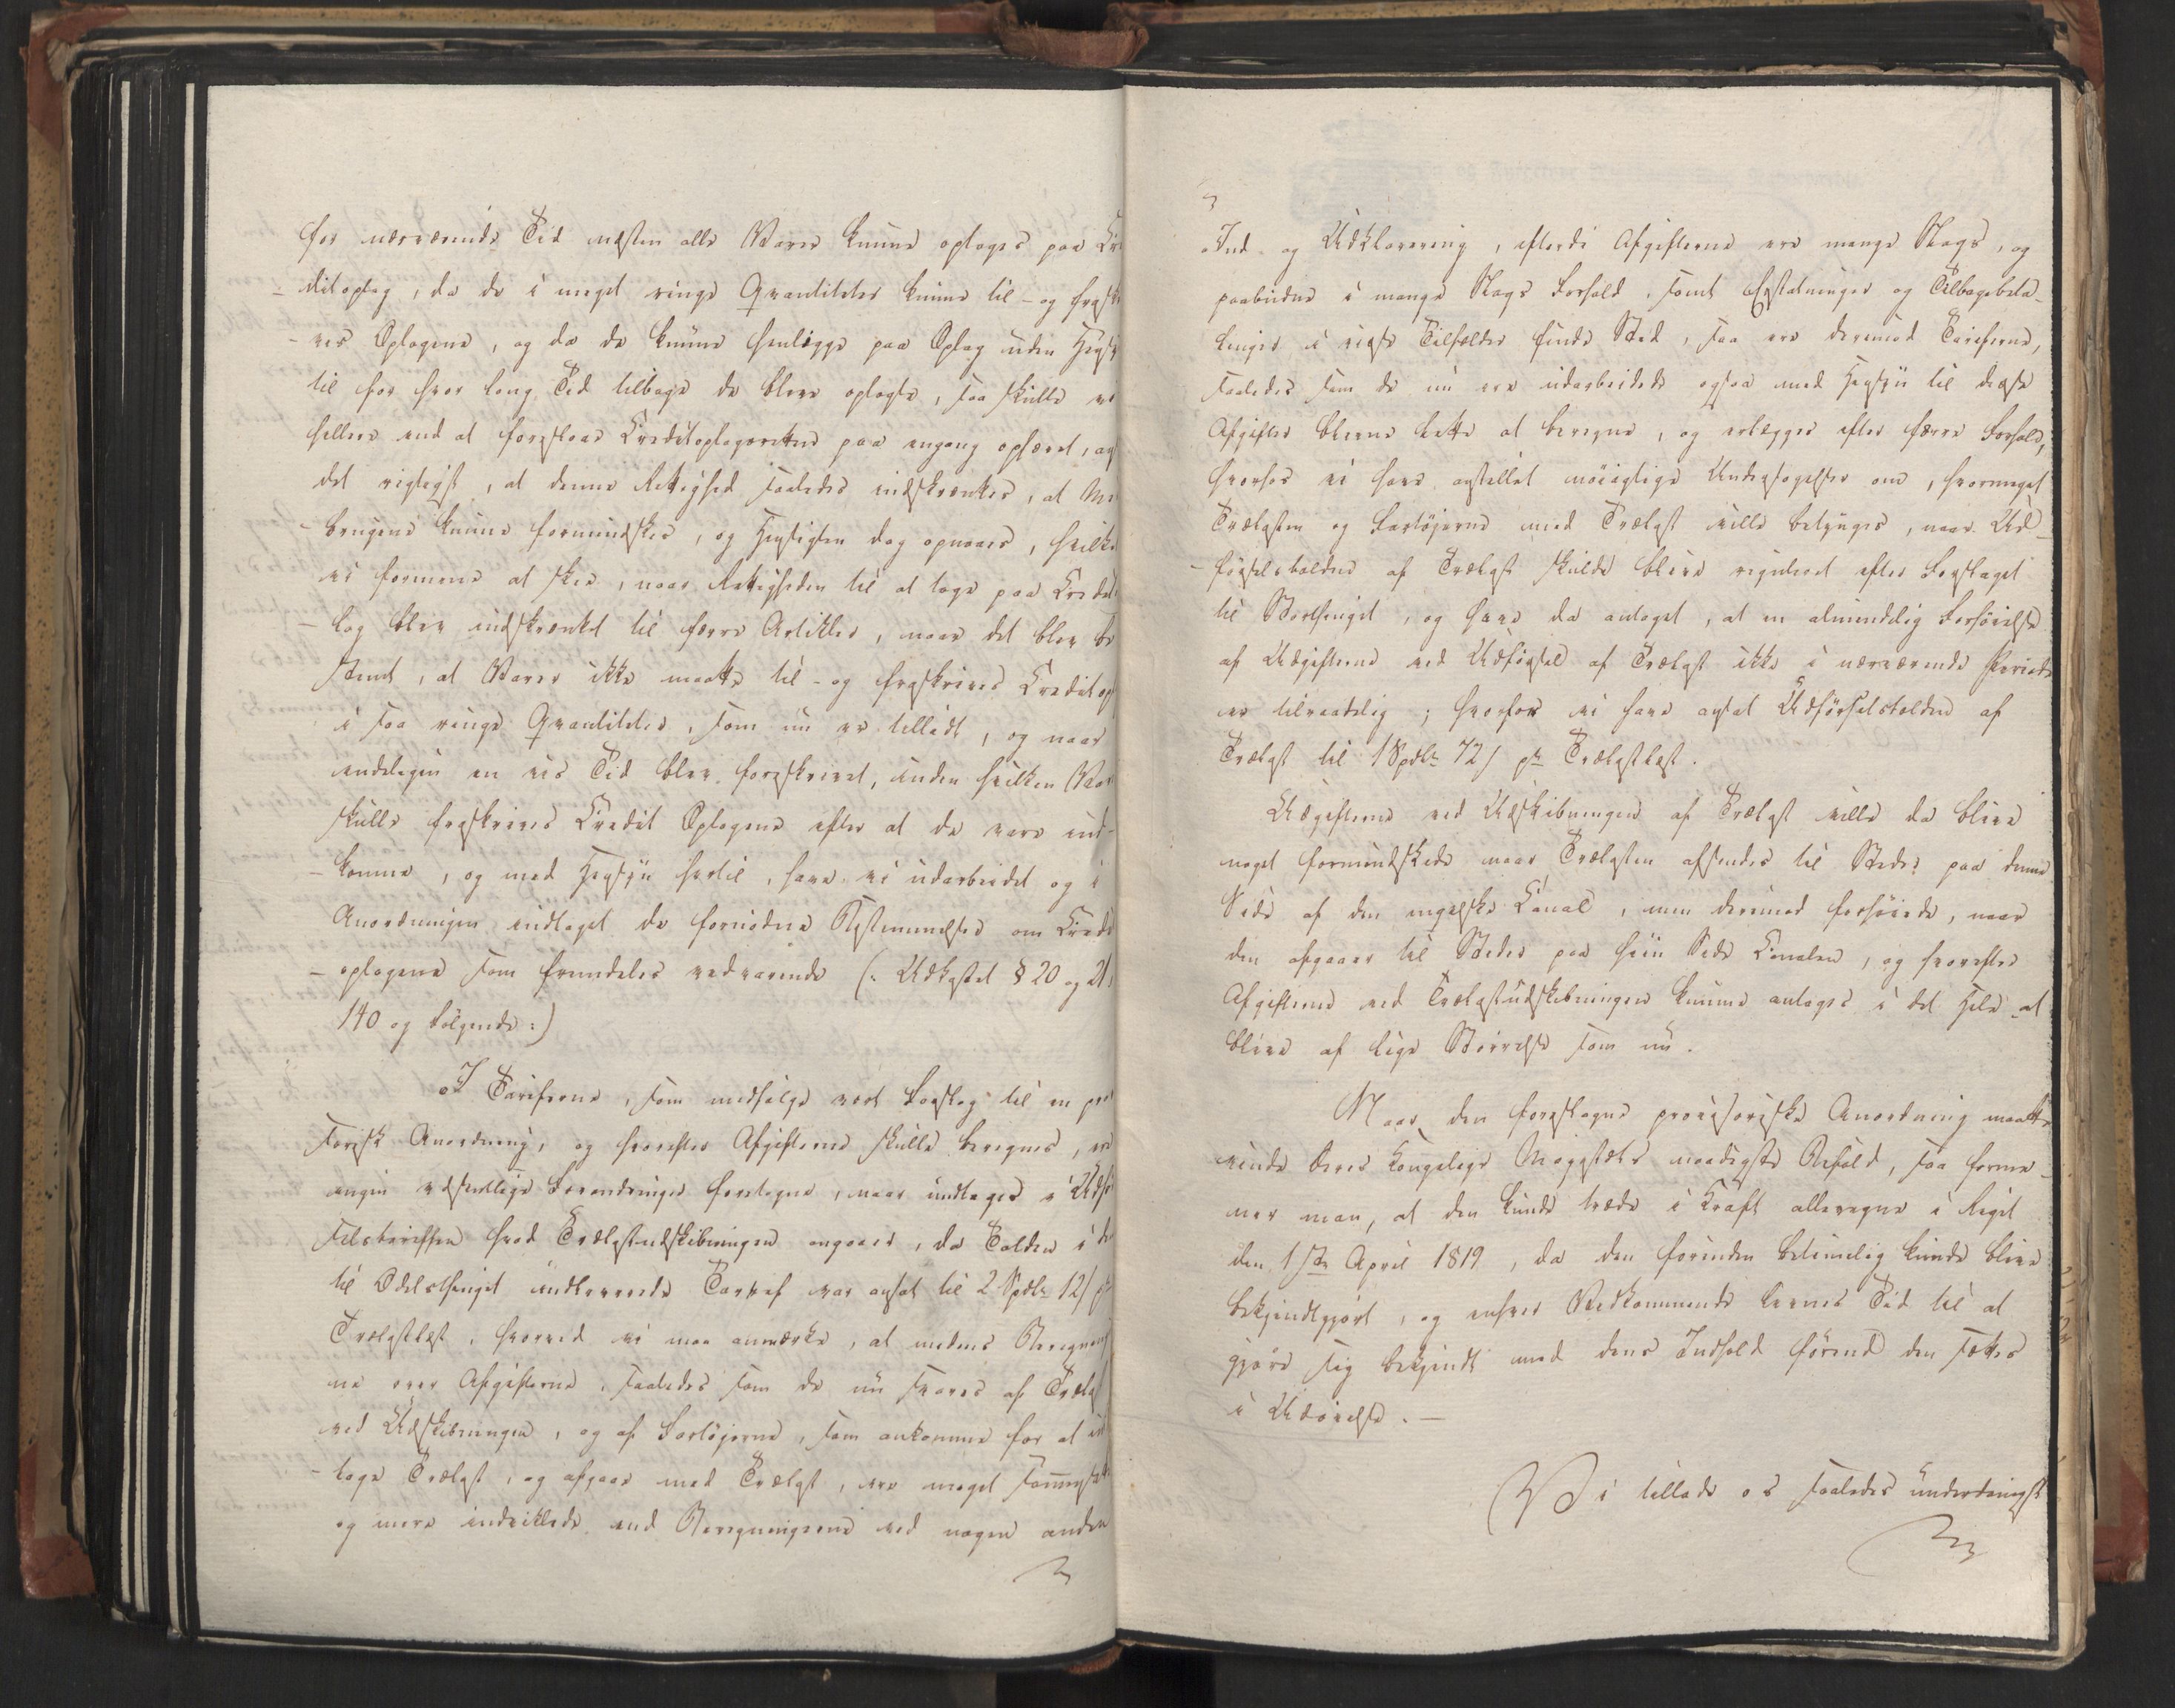 for nærværende Tid næsten alle Varer kunne oplages paa Cre
ditoplag, da de i meget ringe Qvantiteter kunne til- og fraskri
ves Oplagene, og da de kunne henligge paa Oplag uden Hensyn
til for hvor lang Tid tilbage de bleve oplagte, saa skulle vi
hellere end at foreslaae Creditoplagsretten paa engang ophævet, ansee
det rigtigst, at denne Rettighed saaledes indskrænkes, at Mis
brugene kunne formindskes, og Hensigten dog opnaaes, hvilket
vi formene at skee, naar Rettigheden til at tage paa Credit
lag blev indskrænket til færre Artikler, naar det blev be
stemt, at Varer ikke maatte til- og fraskrives Creditopl
i saa ringe Qvantiteter, som nu er tilladt, og naar
endeligen en vis Tid blev foreskrevet, inden hvilken Var
skulle fraskrives Credit Oplagene efter at de vare ind-
komne, og med Hensyn hertil, have vi udarbeidet og i
Anordningen indtaget de fornødne Bestemmelser om Credit
oplagene som fremdeles vedvarende (: Udkastet § 20 og 21,
140 og følgende :)
I Tarifferne, som medfølge vort Forslag til en provi
sorisk Anordning, og hvorefter Afgifterne skulle beregnes, ere
ingen væsentlige Forandringer foretagne, naar undtages i Udfør
selstariffen hvad Trælastudskibningen angaaer, da Tolden i den
til Odelsthinget indleverede Tarif var ansat til 2 Spdlr 12 s pr
Trælastlæst, hvorved vi maa anmærke, at medens Beregninger
ne over Afgifterne, saaledes som de nu svares af Trælast
ved Udskibningen, og af Fartøjerne, som ankomme for at ind
tage Trælast, og afgaae med Trælast, ere meget sammensatte
og mere indviklede end Beregningerne ved nogen anden
Ind- og Udklarering, efterdi Afgifterne ere mange Slags, og
paabudne i mange Slags Forhold, samt Erstatninger og Tilbagebeta-
linger i visse Tilfælder finde Sted, saa ere derimod Tarifferne,
saaledes som de nu ere udarbeidede ogsaa med Hensyn til disse
Afgifter blevne lette at beregne, og erlægges efter færre Forhold,
hvorfor vi have anstillet nøiagtige Undersøgelser om, hvormeget
Trælasten og Fartøjerne med Trælast ville betynges, naar Ud-
førselstolden af Trælast skulde blive reguleret efter Forslaget
til Storthinget, og have da antaget, at en almindelig Forhøielse
af Udgifterne ved Udførsel af Trælast ikke i nærværende Periode
er tilraadelig; hvorfor vi have ansat Udførselstolden af
Trælast til 1 Spdlr 72 s pr Trælastlæst.
Udgifterne ved Udskibningen af Trælast ville da blive
noget formindskede naar Trælasten afsendes til Steder paa denne
Side af den engelske Canal, men derimod forhøiede, naar
den afgaaer til Steder paa hiin Side Canalen, og hvorefter
Afgifterne ved Trælastudskibningen kunne antages i det Hele at
blive af lige Størrelse som nu.
Naar den foreslagne provisoriske Anordning maatte
vinde Deres Kongelige Majestæts naadigste Bifald, saa forme-
ner man, at den kunde træde i Kraft allevegne i Riget
den 1ste April 1819, da den forinden betimelig kunde blive
bekjendtgjort, og enhver Vedkommende levnes Tid til at
gjøre sig bekjendt med dens Indhold førend den sættes
i Udøvelse. —
Vi tillade os saaledes underdanigst